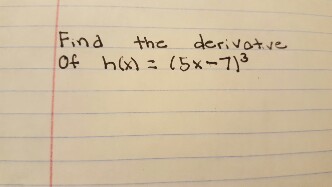 Find the derivative
Of h(x) = (5x-7)³